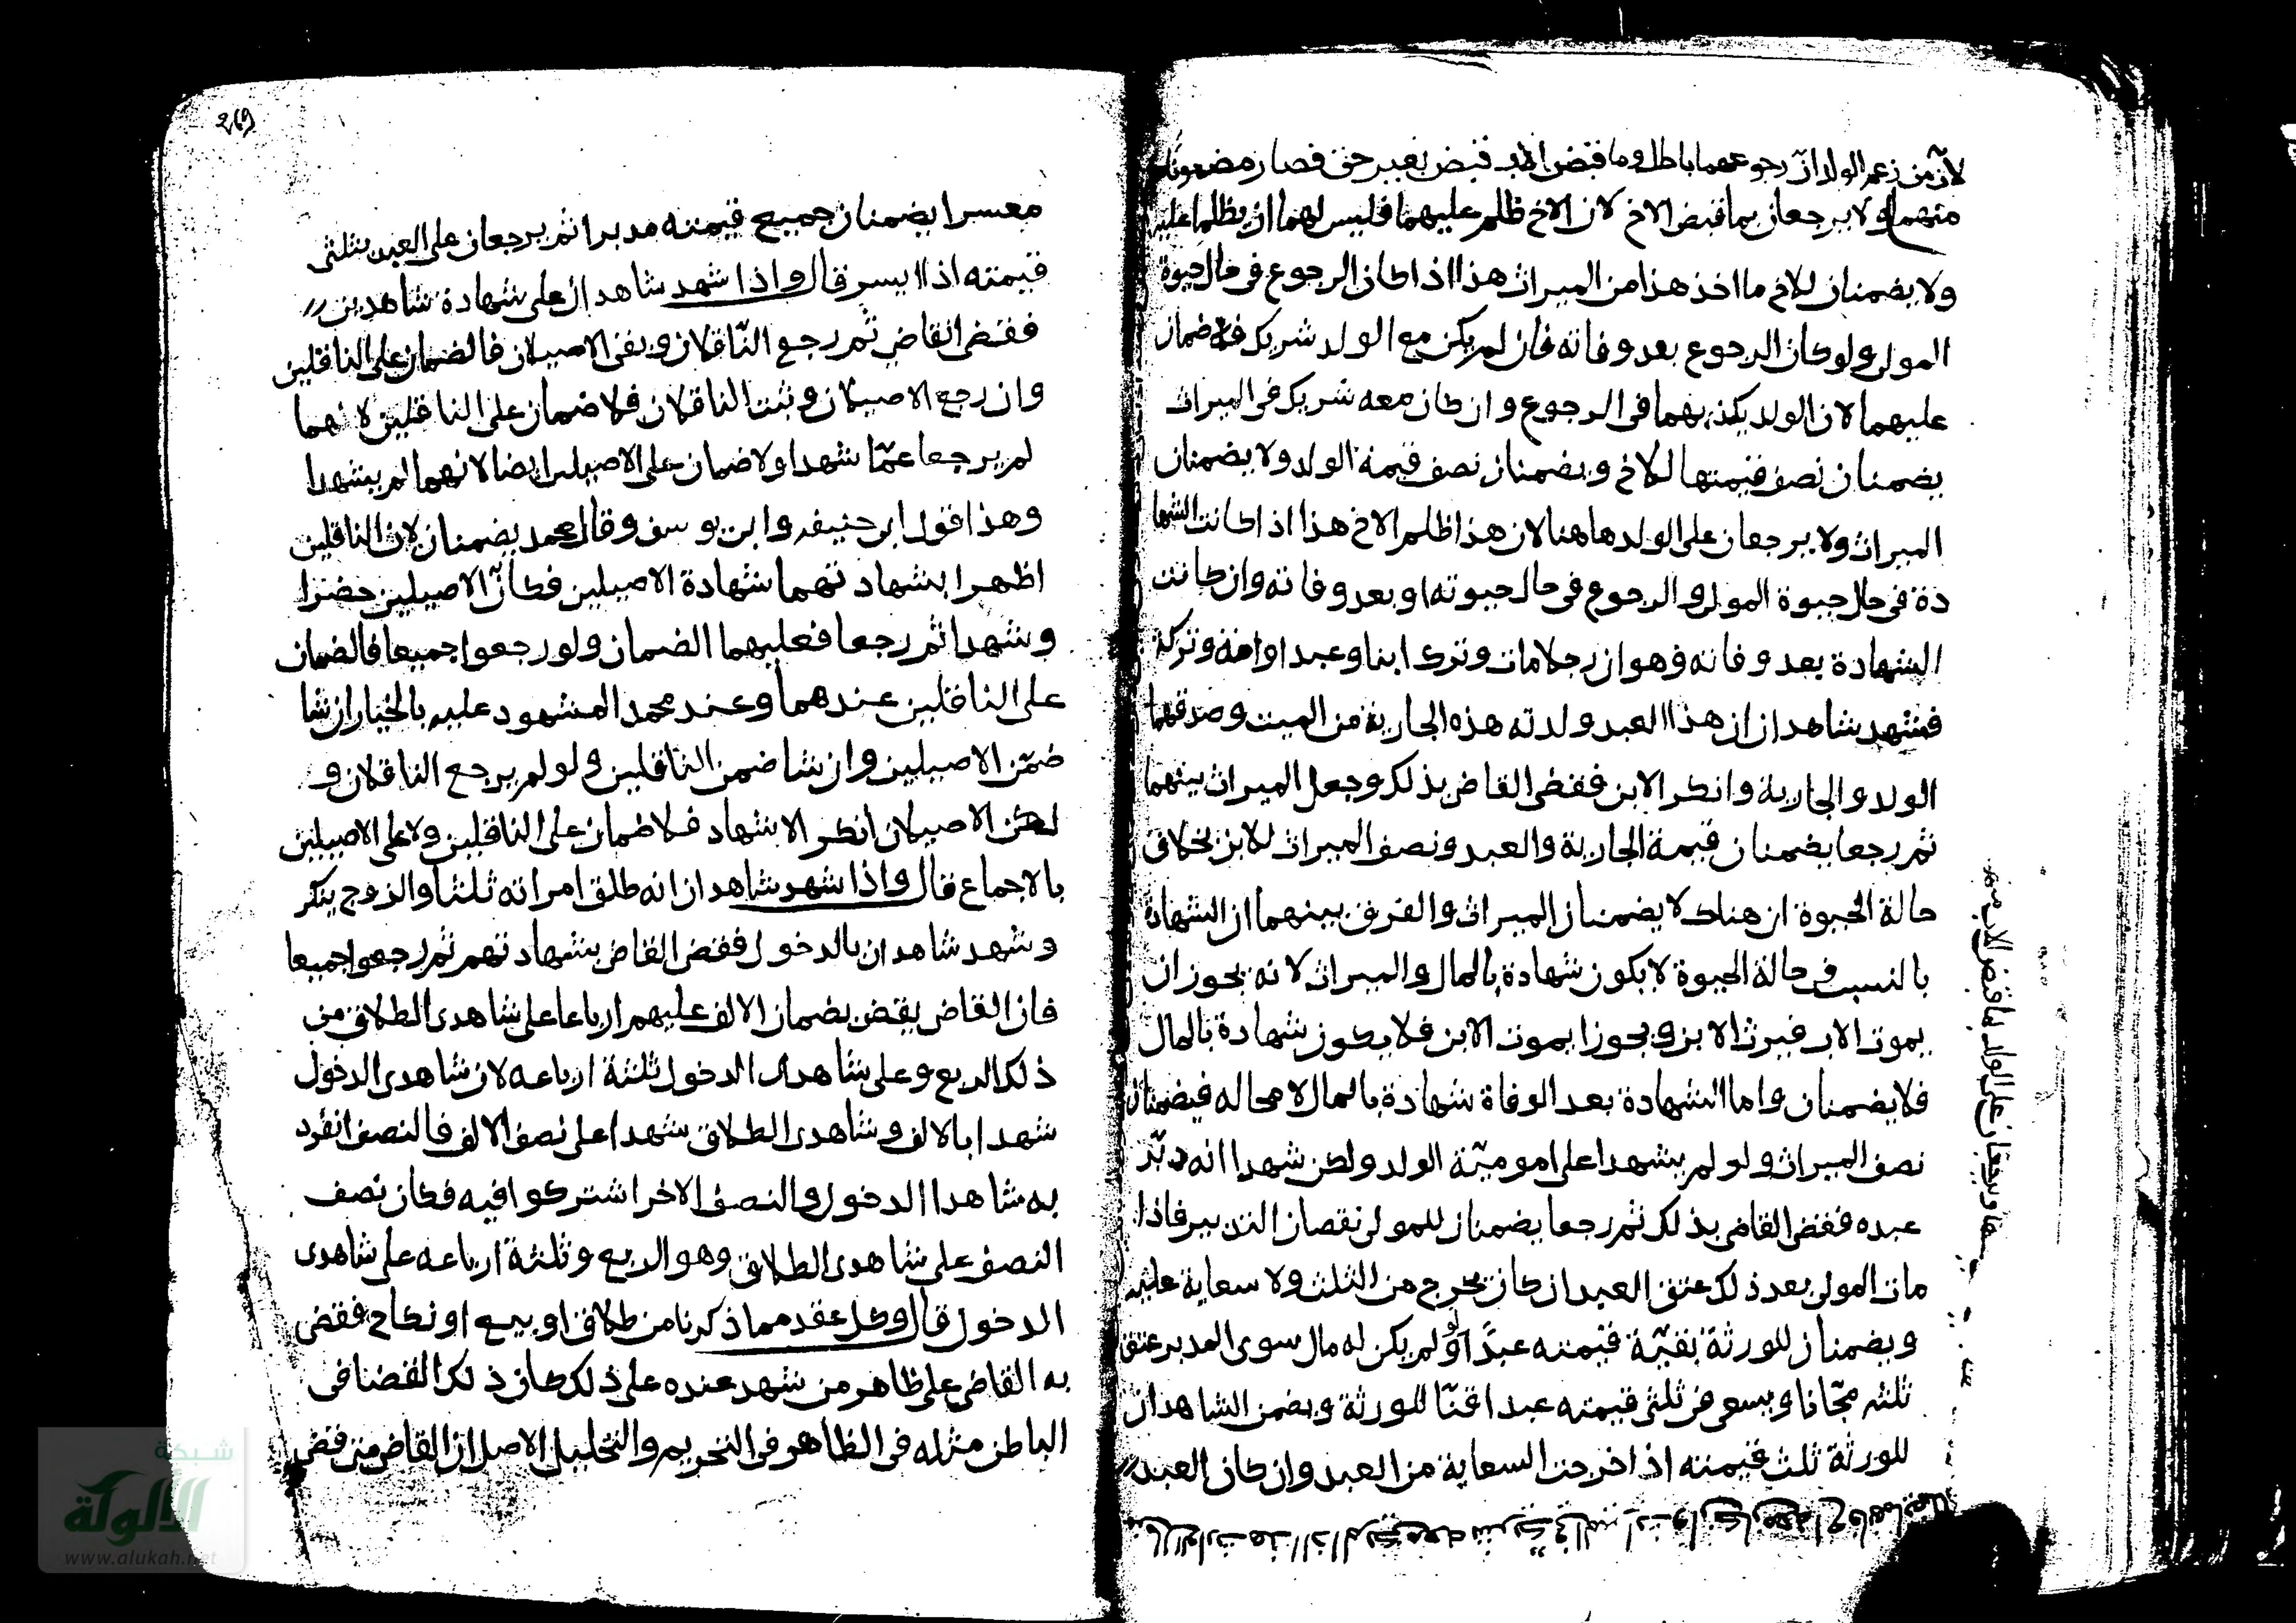 لان من زعم الولد ان رجوعهما باطل وما قبض الاب قبض بغير حق فصار مضمونا
منهما ولا يرجعان بما قبض الاخ لان الاخ ظلم عليهما فليس لهما ان يظلما عليه
ولا يضمنان للاخ ما اخذ هذا من الميراث هذا اذا كان الرجوع في حال حيوة
المولى ولو كان الرجوع بعد وفاته فان لم يكن مع الولد شريك فلا ضمان
عليهما لان الولد يكذبهما في الرجوع وان كان معه شريك في الميراث
يضمنان نصف قيمتها للاخ ويضمنان نصف قيمة الولد ولا يضمنان
الميراث ولا يرجعان على الولد هاهنا لان هذا ظلم الاخ هذا اذا كانت الشها
دة في حال حيوة المولى والرجوع في حال حيوته او بعد وفاته وان كانت
الشهادة بعد وفاته وهو ان رجلا مات وترك ابنا وعبدا وامة وتركة
فشهد شاهدان ان هذا العبد ولدته هذه الجارية من الميت وصدقهما
الولد والجارية وانكر الابن فقضى القاضي بذلك وجعل الميراث بينهما
ثم رجعا يضمنان قيمة الجارية والعبد ونصف الميراث للابن بخلاف
حالة الحيوة ان هناك لا يضمنان الميراث والفرق بينهما ان الشهادة
بالنسب في حالة الحيوة لا يكون شهادة بالمال والميراث لانه يجوز ان
يموت الاب فيرث الابن ويجوز ان يموت الابن فلا يكون شهادة بالمال
فلا يضمنان واما الشهادة بعد الوفاة شهادة بالمال لا محاله فيضمنان
نصف الميراث ولو لم يشهدا على امومية الولد ولكن شهدا انه دبّر
عبده فقضى القاضي بذلك ثم رجعا يضمنان للمولى نقصان التدبير فاذا
مات المولى بعد ذلك عتق العبد ان كان يخرج من الثلث ولا سعاية عليه
ويضمنان للورثة بقيّة قيمته عبدًا ولو لم يكن له مال سوى المدبر عتق
ثلثه مجّانا ويسعى في ثلثي قيمته عبدا قنّا للورثة ويضمن الشاهدان
للورثة ثلث قيمته اذا خرجت السعاية من العبد وان كان العبد
ويرجعان على الولد بما قبض الاب
269
معسرا يضمنان جميع قيمته مدبرا ثم يرجعان على العبد بثلثي
قيمته اذا ايسر قال واذا شهد شاهدان على شهادة شاهدين
فقضى القاضي ثم رجع النّاقلان وبقي الاصيلان فالضمان على الناقلين
وان رجع الاصيلان وثبت الناقلان فلا ضمان على الناقلين لانهما
لم يرجعا عمّا شهدا ولا ضمان على الاصيلين ايضا لانهما لم يشهدا
وهذا قول ابي حنيفه وابي يوسف وقال محمد يضمنان لان الناقلين
اظهرا بشهادتهما شهادة الاصيلين فكانّ الاصيلين حضرا
وشهدا ثم رجعا فعليهما الضمان ولو رجعوا جميعا فالضمان
على الناقلين عندهما وعند محمد المشهود عليه بالخيار ان شا
ضمّن الاصيلين وان شا ضمن الناقلين ولو لم يرجع الناقلان و
لكن الاصيلان انكر الاشهاد فلا ضمان على الناقلين ولا على الاصيلين
بالاجماع قال واذا شهد شاهدان انه طلق امراته ثلثا والزوج ينكر
وشهد شاهدان بالدخول فقضى القاضي بشهادتهم ثم رجعوا جميعا
فان القاضي يقضي بضمان الالف عليهم ارباعا على شاهدى الطلاق من
ذلك الربع وعلى شاهدى الدخول ثلثة ارباعه لان شاهدى الدخول
شهدا بالالف وشاهدى الطلاق شهدا على نصف الالف فالنصف انفرد
به شاهدا الدخول والنصف الاخر اشتركوا فيه فكان نصف
النصف على شاهدى الطلاق وهو الربع وثلثة ارباعه على شاهدى
الدخول قال وكل عقد مما ذكرنا من طلاق او بيع او نكاح فقضى
به القاضي على ظاهر من شهد عنده على ذلك كان ذلك القضا في
الباطن مثله في الظاهر في التحريم والتحليل الاصل ان القاضي متى قضى
شبكة
الألوكة
www.alukah.net